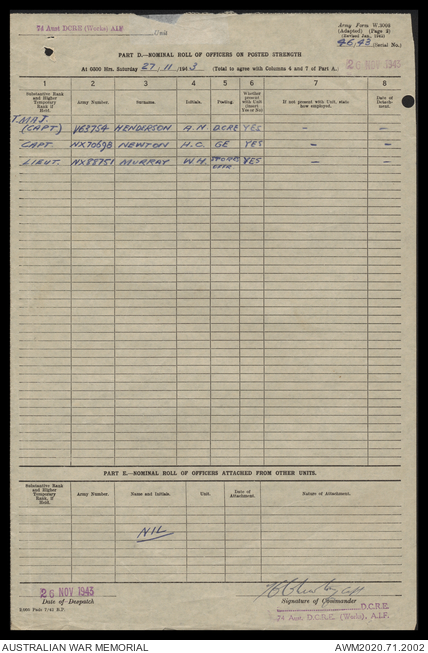 74 Aust DCRE (Works) AIF Unit
Army Form W.3008
(Adapted) (Page 2)
(Revised Jan., 1943)
46,43 (Serial No.)
PART D.—NOMINAL ROLL OF OFFICERS ON POSTED STRENGTH
At 0600 Hrs. Saturday 27/11/1943 (Total to agree with Columns 4 and 7 of Part A.)
26 NOV 1943
1 2 3 4 5 6 7 8
Substantive Rank and Higher Temporary Rank if Held. Army Number. Surname. Initials. Posting. Whether present with Unit (Insert Yes or No) If not present with Unit, state how employed. Date of Detachment.
T. MAJ.
(CAPT) HENDERSON A.N DCRE YES — —
CAPT. NX70698 NEWTON H.C. GE YES — —
LIEUT. NX88751 MURRAY W.H. STORES OFFR YES — —
PART E.—NOMINAL ROLL OF OFFICERS ATTACHED FROM OTHER UNITS.
Substantive Rank and Higher Temporary Rank, if Held. Army Number. Name and Initials. Unit. Date of Attachment. Nature of Attachment.
NIL
26 NOV 1943
Date of Despatch
Signature of Commander
D.C.R.E.
74 Aust. D.C.R.E. (Works), A.I.F.
AUSTRALIAN WAR MEMORIAL AWM2020.71.2002